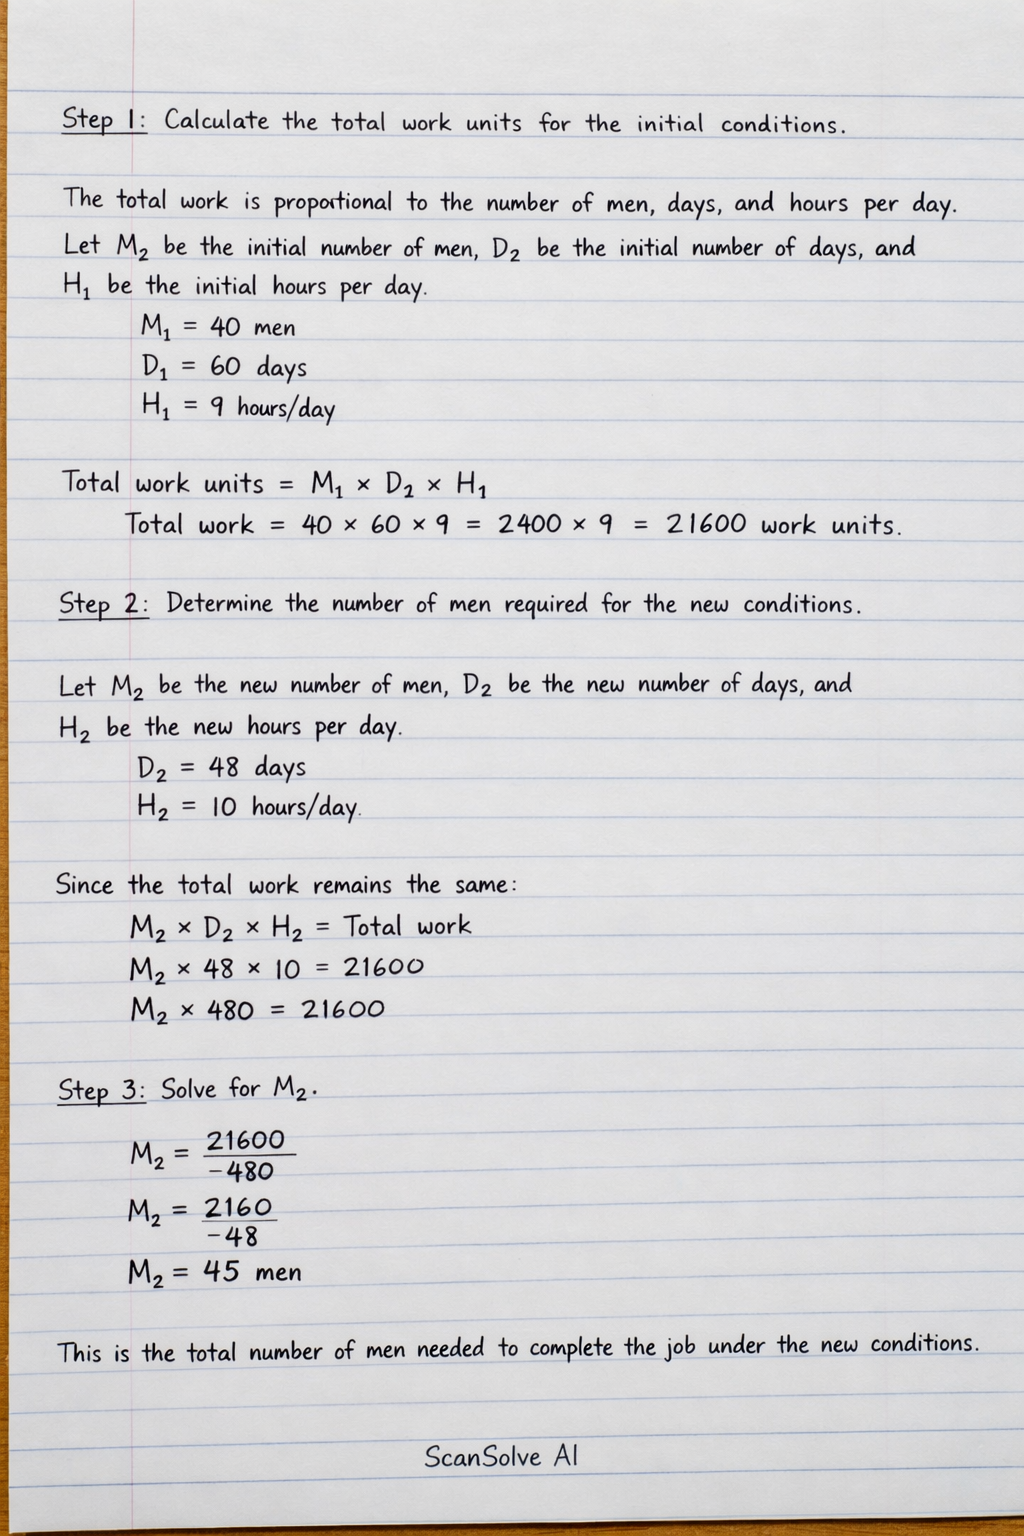 Step 1: Calculate the total work units for the initial conditions.
The total work is proportional to the number of men, days, and hours per day.
Let M₂ be the initial number of men, D₂ be the initial number of days, and
H₁ be the initial hours per day.
M₁ = 40 men
D₁ = 60 days
H₁ = 9 hours/day
Total work units = M₁ × D₂ × H₁
Total work = 40 × 60 × 9 = 2400 × 9 = 21600 work units.
Step 2: Determine the number of men required for the new conditions.
Let M₂ be the new number of men, D₂ be the new number of days, and
H₂ be the new hours per day.
D₂ = 48 days
H₂ = 10 hours/day.
Since the total work remains the same:
M₂ × D₂ × H₂ = Total work
M₂ × 48 × 10 = 21600
M₂ × 480 = 21600
Step 3: Solve for M₂.
M₂ = 21600 / -480
M₂ = 2160 / -48
M₂ = 45 men
This is the total number of men needed to complete the job under the new conditions.
ScanSolve AI